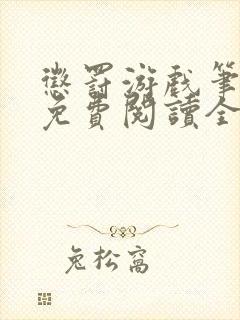 懲罰游戲筆
免費閱讀全
兔松窩